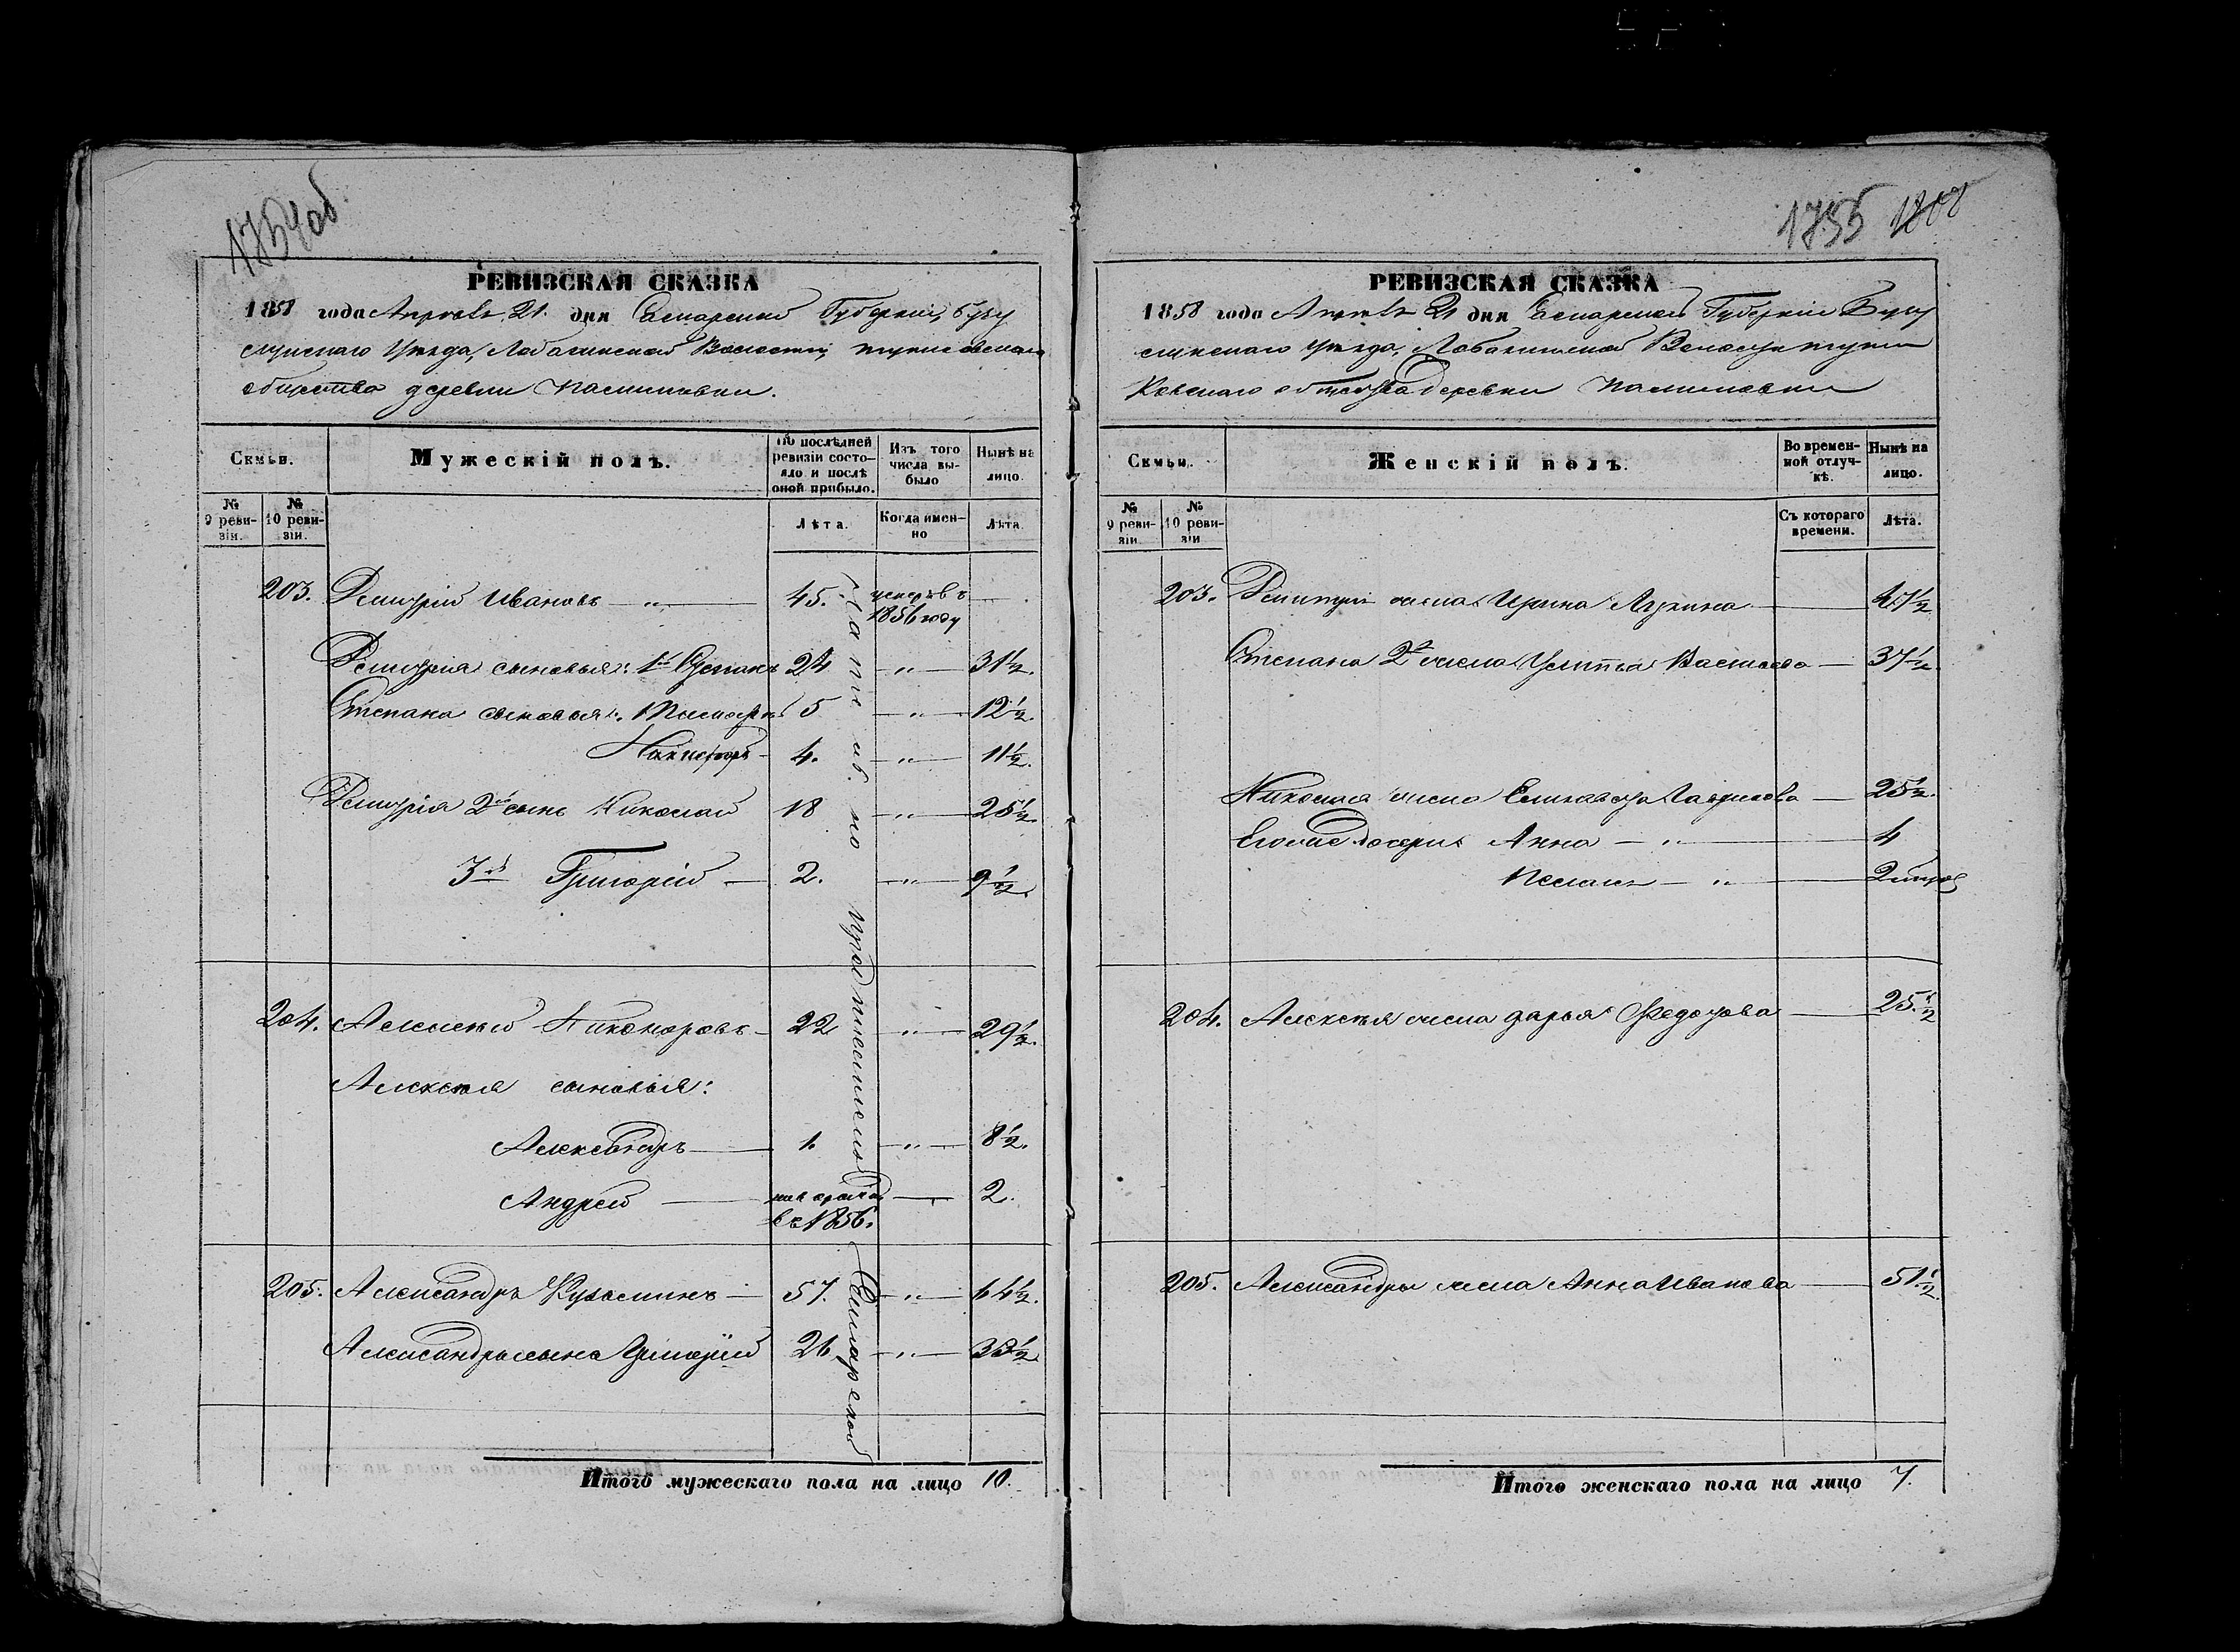 1754об.
РЕВИЗСКАЯ СКАЗКА
1858 года Апреля 21. дня Самарской Губерніи, Бугу
сланскаго Уѣзда,
общества деревни
Семьи.
Мужескій полъ.
По послѣдней ревизіи состояло и послѣ оной прибыло.
Изъ того числа выбыло
Нынѣ на лицо.
№ 9 ревизіи.
№ 10 ревизіи.
Лѣта.
Когда именно
Лѣта
203. Дмитрій Ивановъ — „ — 45. умеръ въ 1856 году —
Дмитрія сыновья: 1й Степанъ 24 — „ — 31½.
Степана сыновья: 5 — „ — 12½.
Никифоръ — 4. — „ — 11½.
Дмитрія 2й сынъ Николай 18 — „ — 25½.
3й Григорій — 2. — „ — 9½.
204. Алексѣй Никоноровъ — 22 — „ — 29½.
Алексѣя сыновья:
Александръ — 1. — „ — 8½.
Андрей — въ 1856. — 2.
205. Александръ Кузьминъ — 57. — „ — 64½.
Александра сынъ Григорій 26 — „ — 33½
по предписанію Самарской
Итого мужескаго пола на лицо 10.
1755
РЕВИЗСКАЯ СКАЗКА
1858 года Апреля 21 дня Самарской Губерніи Бугу
сланскаго Уѣзда,
общества деревни
Семьи.
Женскій полъ.
Во временной отлучкѣ.
Нынѣ на лицо.
№ 9 ревизіи
№ 10 ревизіи
Съ котораго времени.
Лѣта.
203. Дмитрія жена Ирина — 47½
Степана 2я жена — 37½.
Николая жена Елизавета — 25½.
Его же дочери Анна — „ — 4
— „ — 2
204. Алексѣя жена Дарья Федорова — 25.½
205. Александра жена Анна Иванова — 51.½
Итого женскаго пола на лицо 7.